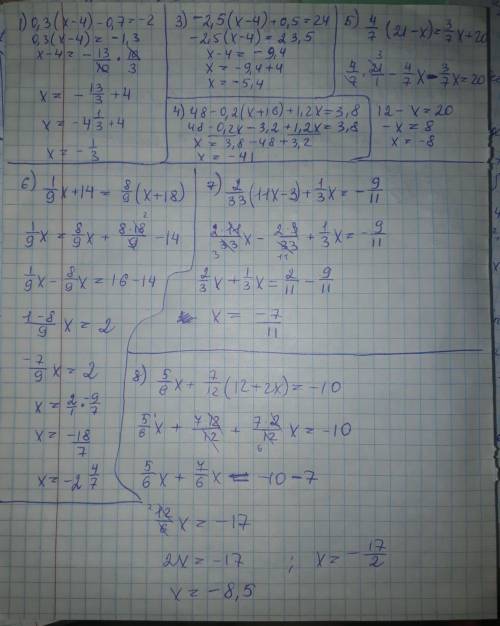 1) 0,3(x-4)-0,7=-2
0,3(x-4)=-1,3
x-4=-13/10·10/3
x=-13/3+4
x=-4 1/3+4
x=-1/3
3) -2,5(x-4)+0,5=24
-2,5(x-4)=23,5
x-4=-9,4
x=-9,4+4
x=-5,4
4) 48-0,2(x+16)+1,2x=3,8
48-0,2x-3,2+1,2x=3,8
x=3,8-48+3,2
x=-41
5) 4/7(21-x)=3/7x+20
4/7·21/1-4/7x-3/7x=20
12-x=20
-x=8
x=-8
6) 1/9x+14=8/9(x+18)
1/9x=8/9x+8·18/9-14
1/9x-8/9x=16-14
1-8/9x=2
-7/9x=2
x=2/1·-9/7
x=-18/7
x=-2 4/7
7) 2/33(11x-3)+1/3x=-9/11
2·11/33x-2·3/33+1/3x=-9/11
2/3x+1/3x=2/11-9/11
x=-7/11
8) 5/6x+7/12(12+2x)=-10
5/6x+7·12/12+7·2/12x=-10
5/6x+7/6x=-10-7
12/6x=-17
2x=-17 ; x=-17/2
x=-8,5